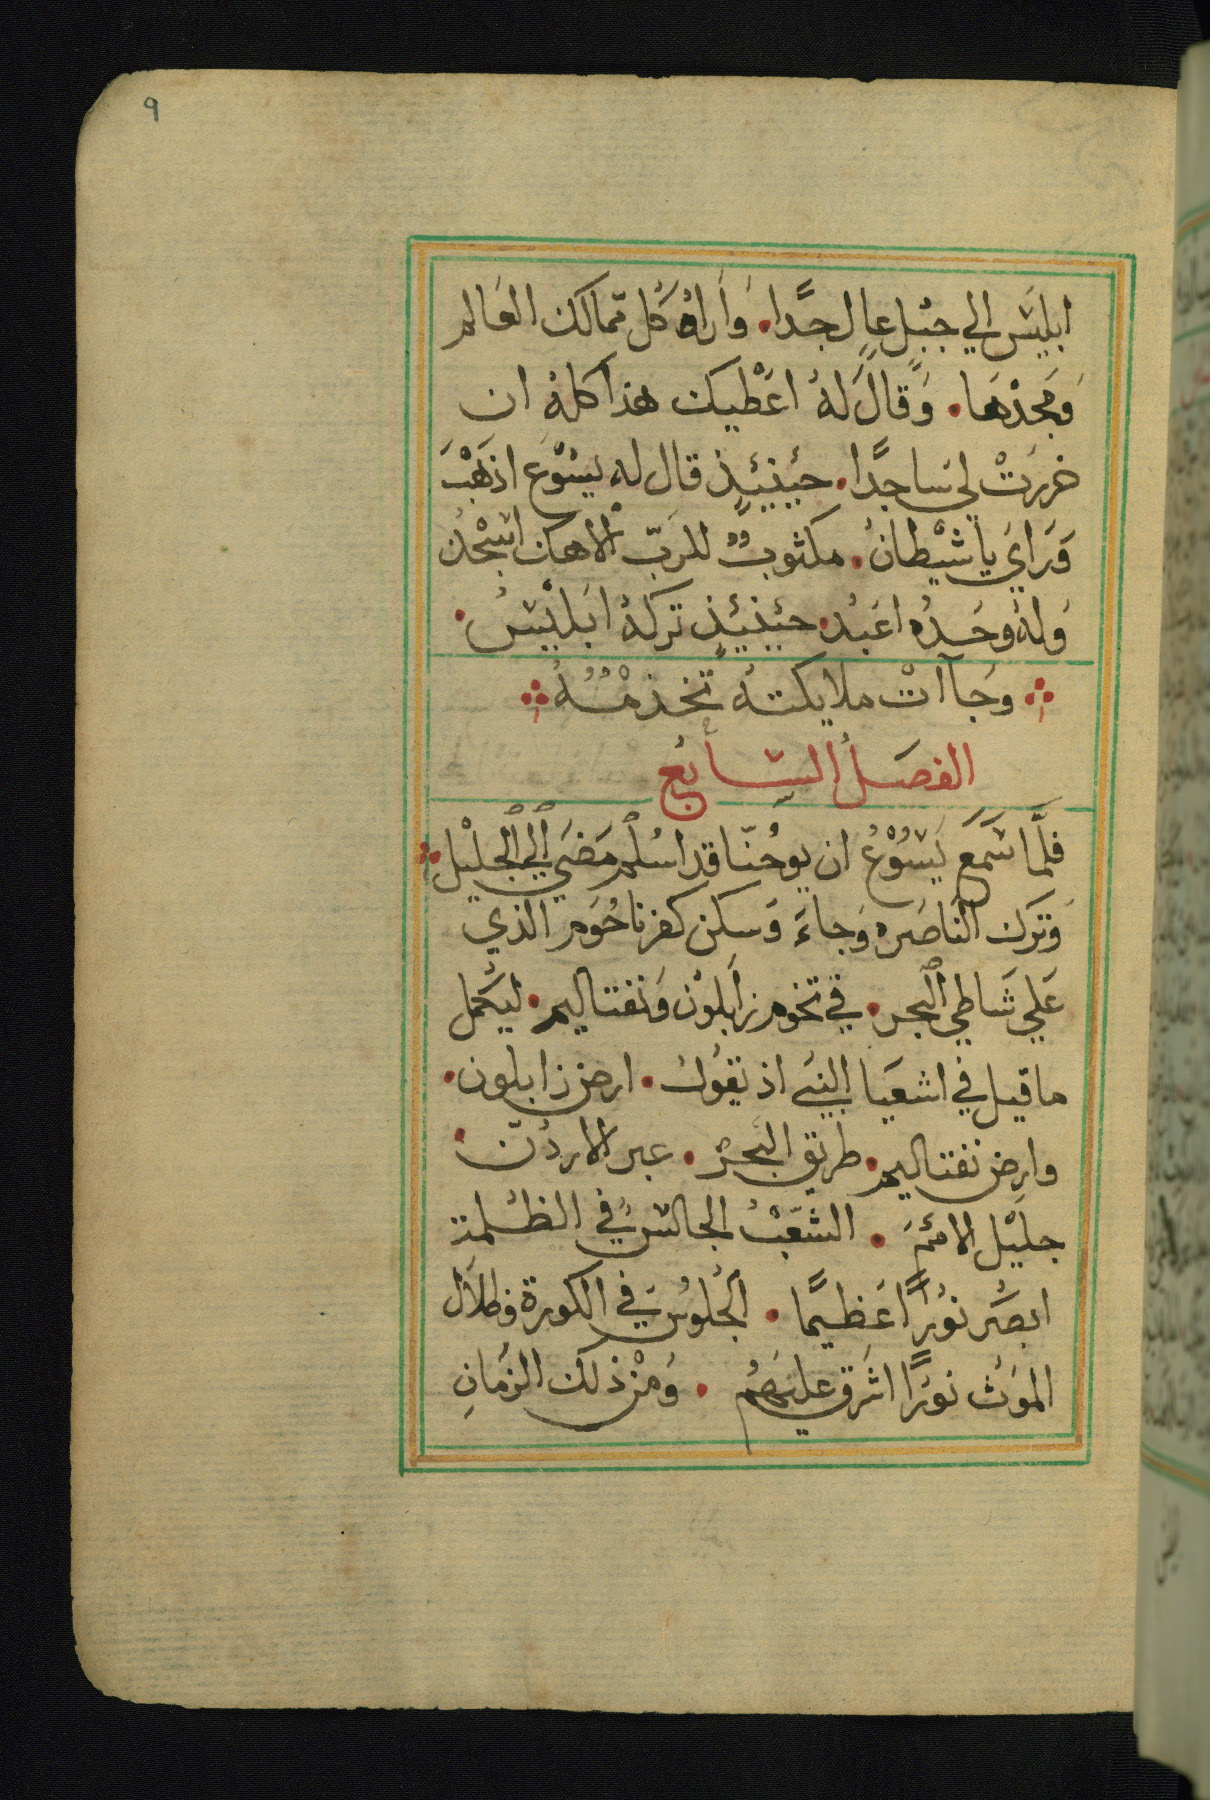 ٩
ابليَس الي جبَل عالٍ جدًّا. وَاَراهُ كُل ممالك العَالم
وَمجدْهَا. وَقالَ لهُ اعَطيك هذا كلهُ ان
خررَتْ لي سَاجدًا. حيَنيئذٍ قال له يسَوْع اذهَبْ
وَرَايَ يا شيْطانُ. مكتوبٌ للرَبّ الاهك اسْجد
وَلهُ وحَدهُ اعَبُد. حيَنيئذٍ تركهُ ابَليْسُ.
وجَآات ملايكتهُ تخذمُهُ
الفصَل السَابع
فلمَّا سَمَع يَسُوْعُ ان يوحُنّا قد اسُلم مَضَي الي الجليْل
وَترك النَاصَره وَجاءَ وَسكن كفرناحُوَم الذي
عَلي شَاطي البحر. في تخوم زابَلوْن وَنفتاليم. ليكمل
ما قيل في اشعَيا النبي اذ يقوُل. ارض زابلون.
وارض نفتاليم. طريق البَحرْ. عبر الاردُنّ.
جليَل الامُمَ. الشعَبْ الجالسُ في الظُلمة
ابصَر نوُرًا عَظيمًا. الجُلوسُ في الكورة وظلال
الموَت نورًا اشرَق عليَهمُ. وَمنْ ذلك الزمَانِ